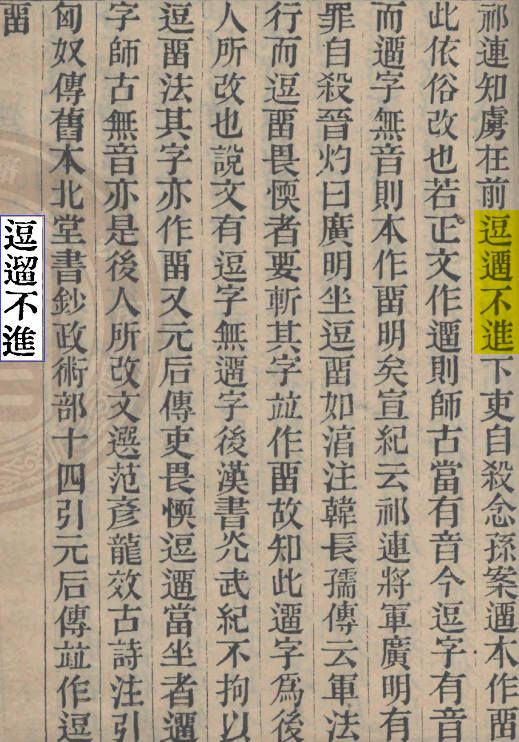 祁連知虜在前逗遛不進下吏自殺念孫案遛本作畱
此依俗改也若正文作遛則師古當有音今逗字有音
而遛字無音則本作畱明矣宣紀云祁連將軍廣明有
罪自殺晉灼曰廣明坐逗畱如湻注韓長孺傳云軍法
行而逗畱畏愞者要斬其字竝作畱故知此遛字爲後
人所改也說文有逗字無遛字後漢書光武紀不拘以
逗畱法其字亦作畱又元后傳吏畏愞逗遛當坐者遛
字師古無音亦是後人所改文選范彥龍效古詩注引
匈奴傳舊本北堂書鈔政術部十四引元后傳竝作逗
畱
逗遛不進